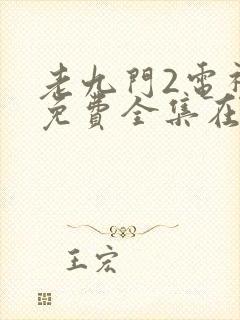 老九門2雷
免費全集在
王宏